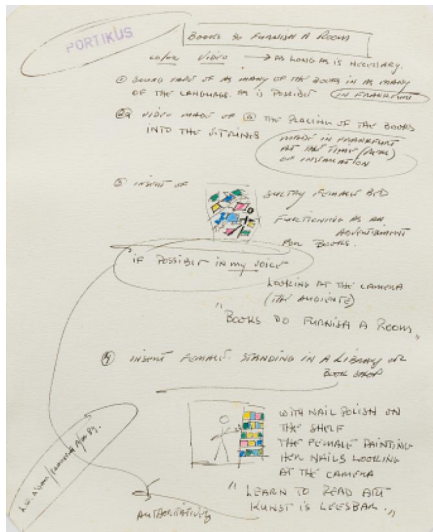 PORTIKUS
BOOKS DO FURNISH A ROOM
VIDEO → AS LONG AS IS NECESSARY.
① SOUND TAPE OF AS MANY OF THE BOOKS IN AS MANY
OF THE LANGUAGE AS IS POSSIBLE IN FRANKFURT
VIDEO MADE OF THE PLACING OF THE BOOKS
INTO THE
MADE IN FRANKFURT
AT THE TIME
OF INSTALLATION
③ INSERT OF
SULTRY FEMALE
FUNCTIONING AS AN
ADVERTISMENT
FOR BOOKS.
IF POSSIBLE IN MY VOICE
LOOKING AT THE CAMERA
(THE AUDIENCE)
"BOOKS DO FURNISH A ROOM"
④ INSERT FEMALE. STANDING IN A LIBRARY OR
BOOK SHOP
WITH NAIL POLISH ON
THE SHELF
THE FEMALE PAINTING
HER NAILS LOOKING
AT THE CAMERA
"LEARN TO READ ART
KUNST IS LEESBAR."
AUTHORITATIVELY